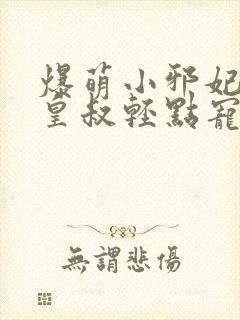 爆萌小邪妃
皇叔輕點寵
無謂悲傷